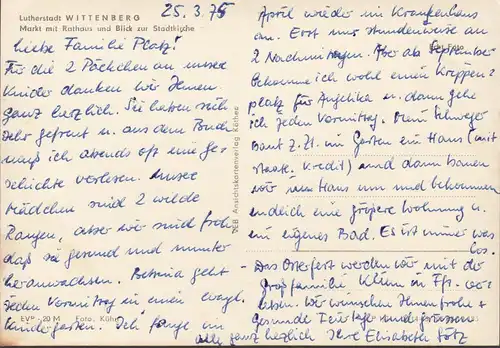 Lutherstadt WITTENBERG
Markt mit Rathaus und Blick zur Stadtkirche
25.3.75
Liebe Familie Platz!
Für die 2 Päckchen an unsere
Kinder danken wir Ihnen
ganz herzlich. Sie haben sich
sehr gefreut u. aus dem Buch
muß ich abends oft eine Ge-
schichte vorlesen. Unsere
Mädchen sind 2 wilde
Rangen, aber wir sind froh,
daß sie gesund und munter
heranwachsen. Bettina geht
jeden Vormittag in einen evangl.
Kindergarten. Ich fange im
EVP -20 M Foto: Kühn
PEB Ansichtskartenverlag Köthen
April wieder im Krankenhaus
an. Erst nur stundenweise an
2 Nachmittagen. Aber ab September
bekomme ich wohl einen Krippen-
platz für Angelika u. dann gehe
ich jeden Vormittag. Mein Schwager
baut z. Zt. im Garten ein Haus (mit
staatl. Kredit) und dann bauen
wir im Haus um und bekommen
endlich eine größere Wohnung u.
ein eigenes Bad. Es ist immer was
los.
Das Osterfest werden wir mit der
Großfamilie Klein in
leben. Wir wünschen Ihnen frohe u.
gesunde Festtage und grüssen
alle ganz herzlich Ihre Elisabeth Götz